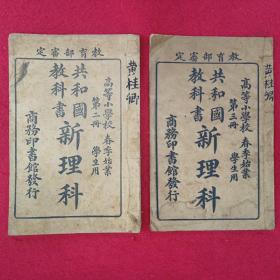 教育部審定
黄桂卿
高等小學校 春季始業
第二冊 學生用
共和國教科書
新理科
商務印書館發行
教育部審定
黄桂卿
高等小學校 春季始業
第三冊 學生用
共和國教科書
新理科
商務印書館發行